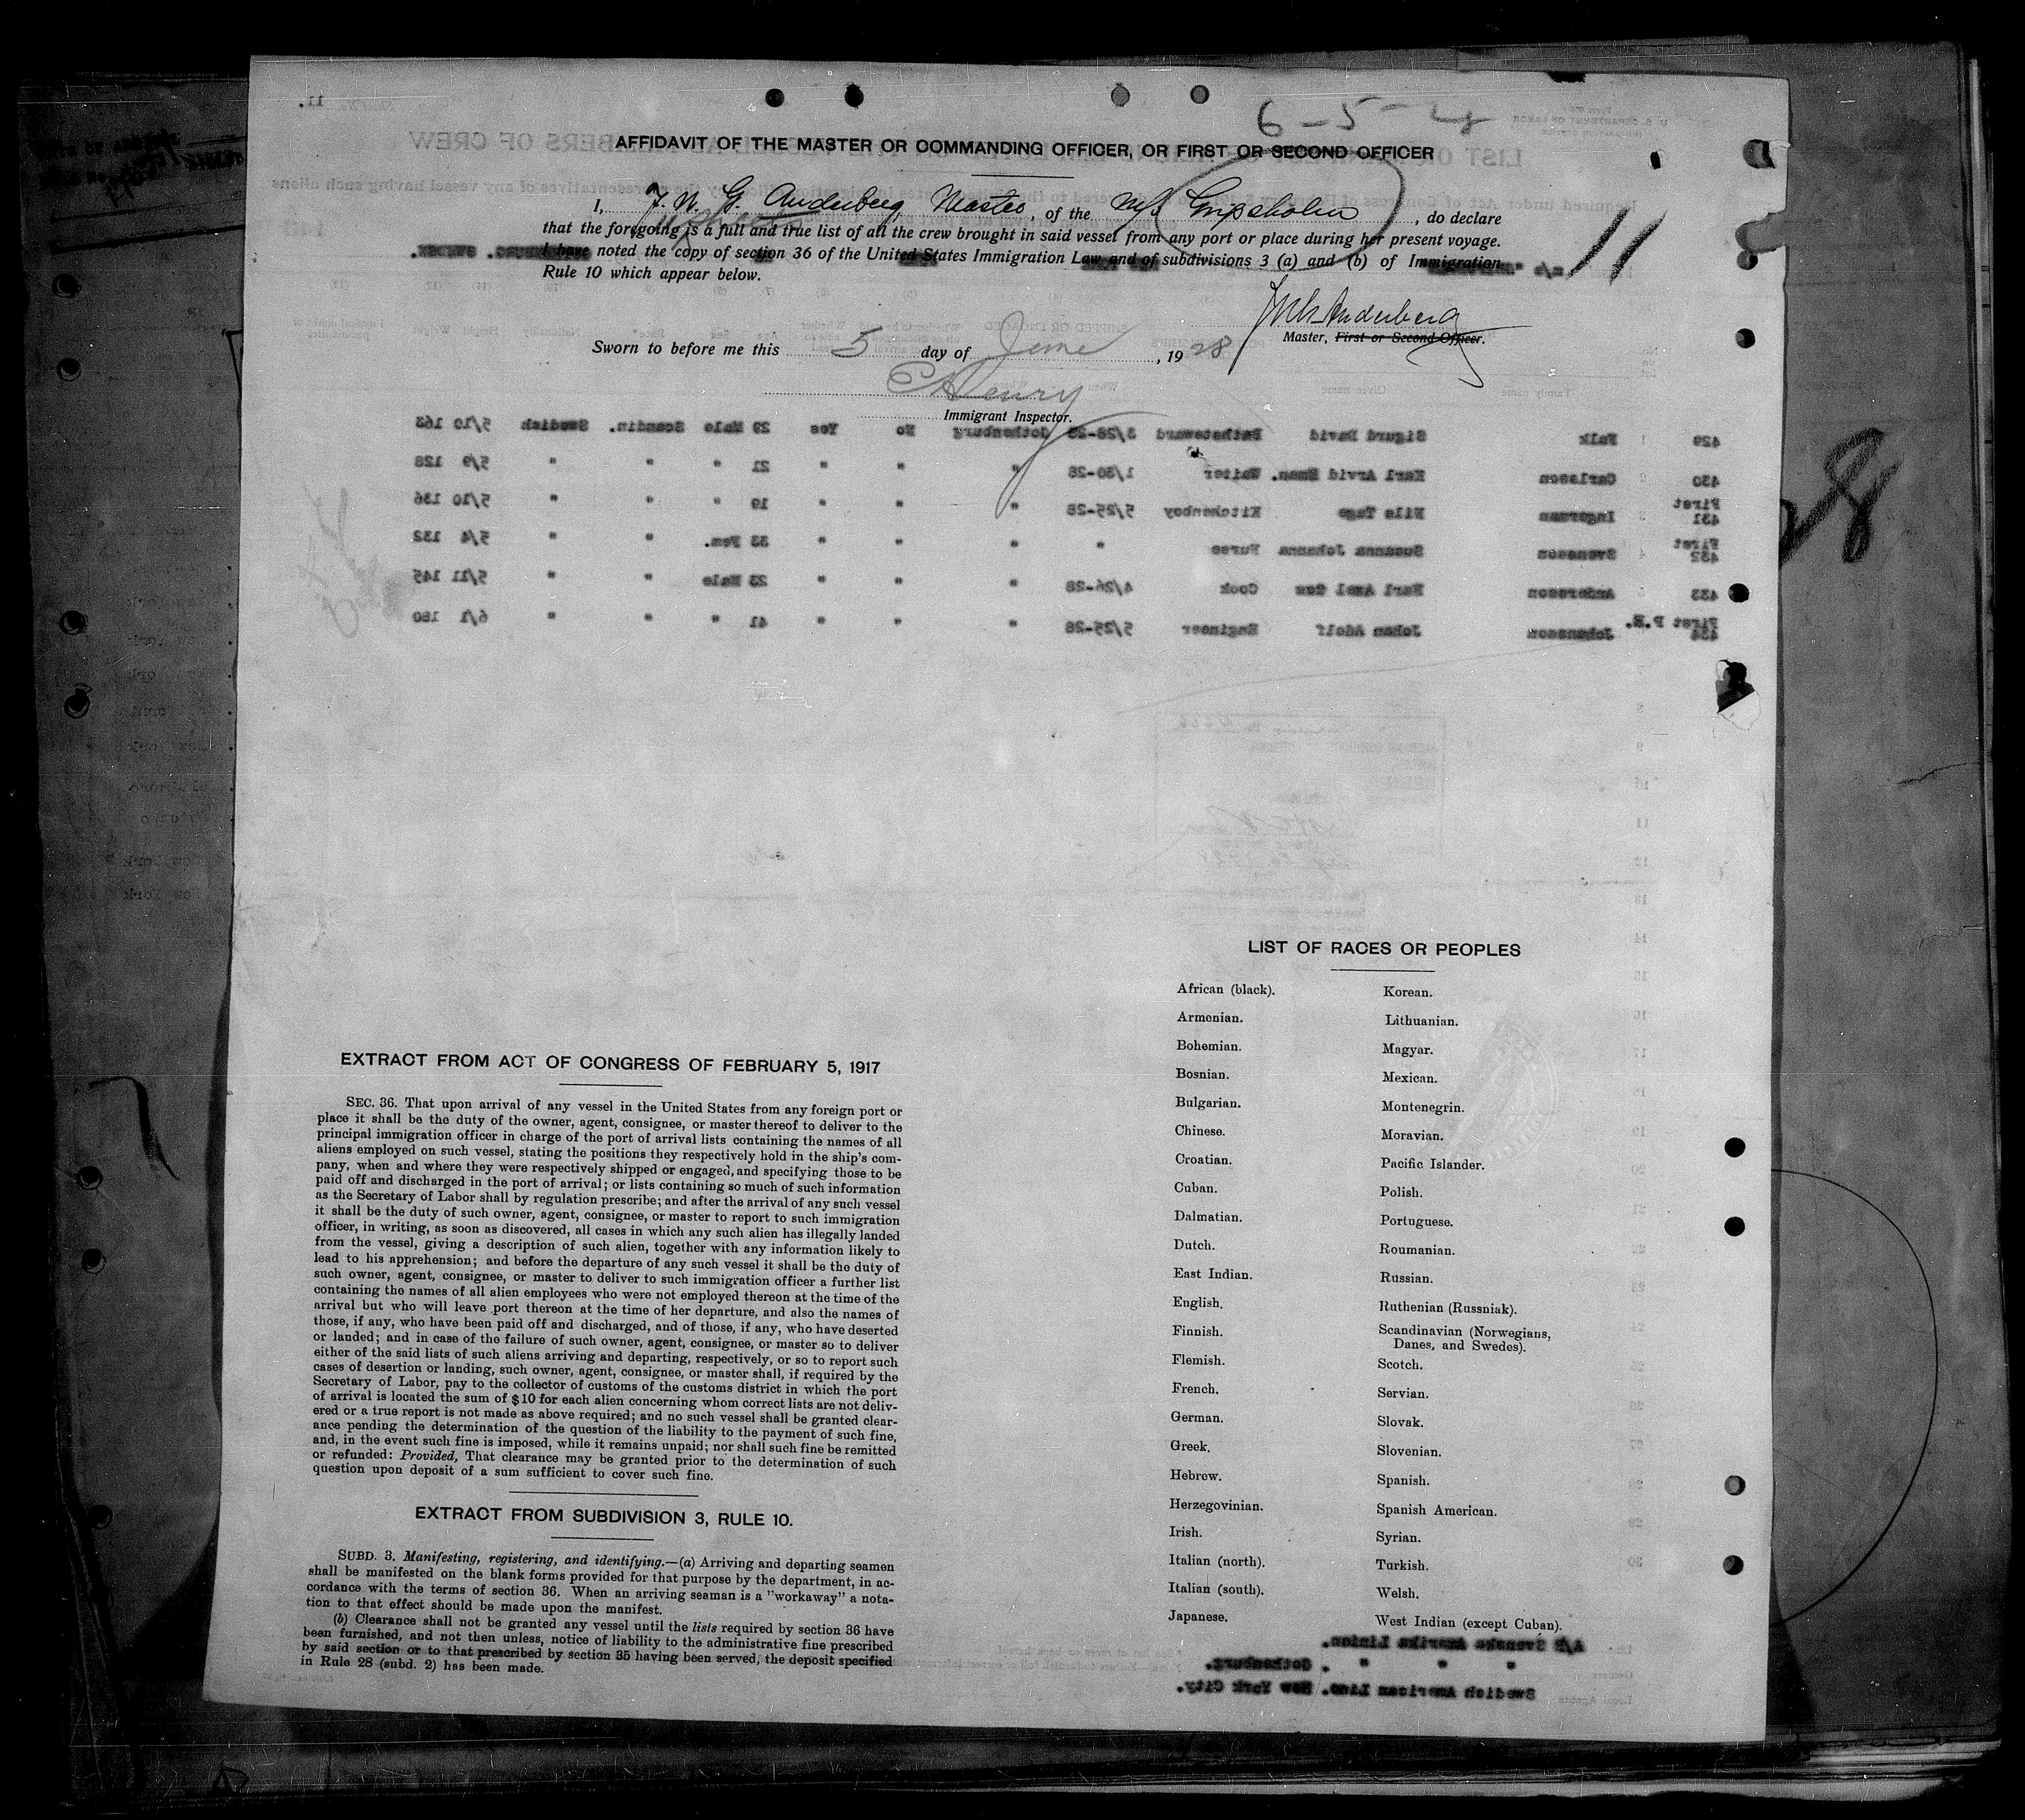 6-5-
AFFIDAVIT OF THE MASTER OR COMMANDING OFFICER, OR FIRST OR SECOND OFFICER
I, J. W. G. Anderberg, Master, of the M/S Gripsholm, do declare
that the foregoing is a full and true list of all the crew brought in said vessel from any port or place during her present voyage.
I have noted the copy of section 36 of the United States Immigration Law and of subdivisions 3 (a) and (b) of Immigration
Rule 10 which appear below.
11
Anderberg
Master, First or Second Officer.
Sworn to before me this 5 day of June, 1928
Henry
Immigrant Inspector.
429 1 Falk Sigurd David Bathsteward 3/28-28 Gothenburg No Yes 29 Male Scandin. Swedish 5/10 163
430 2 Carlsson Karl Arvid Eman. Waiter 1/30-28 " " " 21 " " " 5/9 128
First
431 3 Ingerman Nils Tage Kitchenboy 5/25-28 " " " 19 " " " 5/10 136
First
432 4 Svensson Susanna Johanna Nurse " " " " 33 Fem. " " 5/4 132
433 5 Andersson Karl Axel Cook 4/26-28 " " " 23 Male " " 5/11 145
First P.E.
434 Johansson Johan Adolf Engineer 5/25-28 " " " 41 " " " 6/1 180
28
LIST OF RACES OR PEOPLES
African (black).
Armenian.
Bohemian.
Bosnian.
Bulgarian.
Chinese.
Croatian.
Cuban.
Dalmatian.
Dutch.
East Indian.
English.
Finnish.
Flemish.
French.
German.
Greek.
Hebrew.
Herzegovinian.
Irish.
Italian (north).
Italian (south).
Japanese.
Korean.
Lithuanian.
Magyar.
Mexican.
Montenegrin.
Moravian.
Pacific Islander.
Polish.
Portuguese.
Roumanian.
Russian.
Ruthenian (Russniak).
Scandinavian (Norwegians,
Danes, and Swedes).
Scotch.
Servian.
Slovak.
Slovenian.
Spanish.
Spanish American.
Syrian.
Turkish.
Welsh.
West Indian (except Cuban).
EXTRACT FROM ACT OF CONGRESS OF FEBRUARY 5, 1917
SEC. 36. That upon arrival of any vessel in the United States from any foreign port or
place it shall be the duty of the owner, agent, consignee, or master thereof to deliver to the
principal immigration officer in charge of the port of arrival lists containing the names of all
aliens employed on such vessel, stating the positions they respectively hold in the ship's com-
pany, when and where they were respectively shipped or engaged, and specifying those to be
paid off and discharged in the port of arrival; or lists containing so much of such information
as the Secretary of Labor shall by regulation prescribe; and after the arrival of any such vessel
it shall be the duty of such owner, agent, consignee, or master to report to such immigration
officer, in writing, as soon as discovered, all cases in which any such alien has illegally landed
from the vessel, giving a description of such alien, together with any information likely to
lead to his apprehension; and before the departure of any such vessel it shall be the duty of
such owner, agent, consignee, or master to deliver to such immigration officer a further list
containing the names of all alien employees who were not employed thereon at the time of the
arrival but who will leave port thereon at the time of her departure, and also the names of
those, if any, who have been paid off and discharged, and of those, if any, who have deserted
or landed; and in case of the failure of such owner, agent, consignee, or master so to deliver
either of the said lists of such aliens arriving and departing, respectively, or so to report such
cases of desertion or landing, such owner, agent, consignee, or master shall, if required by the
Secretary of Labor, pay to the collector of customs of the customs district in which the port
of arrival is located the sum of $10 for each alien concerning whom correct lists are not deliv-
ered or a true report is not made as above required; and no such vessel shall be granted clear-
ance pending the determination of the question of the liability to the payment of such fine,
and, in the event such fine is imposed, while it remains unpaid; nor shall such fine be remitted
or refunded: Provided, That clearance may be granted prior to the determination of such
question upon deposit of a sum sufficient to cover such fine.
EXTRACT FROM SUBDIVISION 3, RULE 10.
SUBD. 3. Manifesting, registering, and identifying.—(a) Arriving and departing seamen
shall be manifested on the blank forms provided for that purpose by the department, in ac-
cordance with the terms of section 36. When an arriving seaman is a "workaway" a nota-
tion to that effect should be made upon the manifest.
(b) Clearance shall not be granted any vessel until the lists required by section 36 have
been furnished, and not then unless, notice of liability to the administrative fine prescribed
by said section or to that prescribed by section 35 having been served, the deposit specified
in Rule 28 (subd. 2) has been made.
A/B Svenska Amerika Linien.
" " " . Gothenburg.
Swedish American Line. New York City.